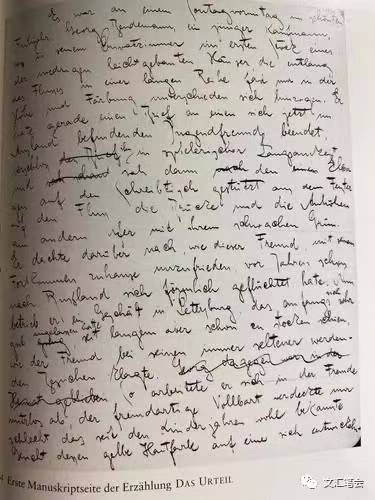 Es war an einem Sonntagvormittag im schönsten
Frühjahr. Georg Bendemann, ein junger Kaufmann,
sass in seinem Privatzimmer im ersten Stock eines
der niedrigen leichtgebauten Häuser die entlang
des Flusses in einer langen Reihe fast nur in der
Höhe und Färbung unterschieden sich hinzogen. Er
hatte gerade einen Brief an einen sich jetzt im
Ausland befindenden Jugendfreund beendet,
verschloss den Brief ihn in spielerischer Langsamkeit
und sah dann den Elbo-
gen auf den Schreibtisch gestützt aus dem Fenster
auf den Fluss die Brücke und die Anhöhen
am andern Ufer mit ihrem schwachen Grün.
Er dachte darüber nach wie dieser Freund mit seinem
Fortkommen zuhause unzufrieden vor Jahren schon
nach Russland sich förmlich geflüchtet hatte. Nun
betrieb er ein Geschäft in Petersburg, das anfangs sehr
gut angelassen hatte seit langem aber schon zu stocken schien,
wie der Freund bei seinen immer seltener werden-
den Besuchen klagte. Georg dagegen war in der
So arbeitete er sich in der Fremde
nutzlos ab, der fremdartige Vollbart verdeckte nur
schlecht das seit den Kinderjahren wohl bekannte
Gesicht dessen gelbe Hautfarbe auf eine sich entwickeln
4 Erste Manuskriptseite der Erzählung DAS URTEIL
文汇笔会